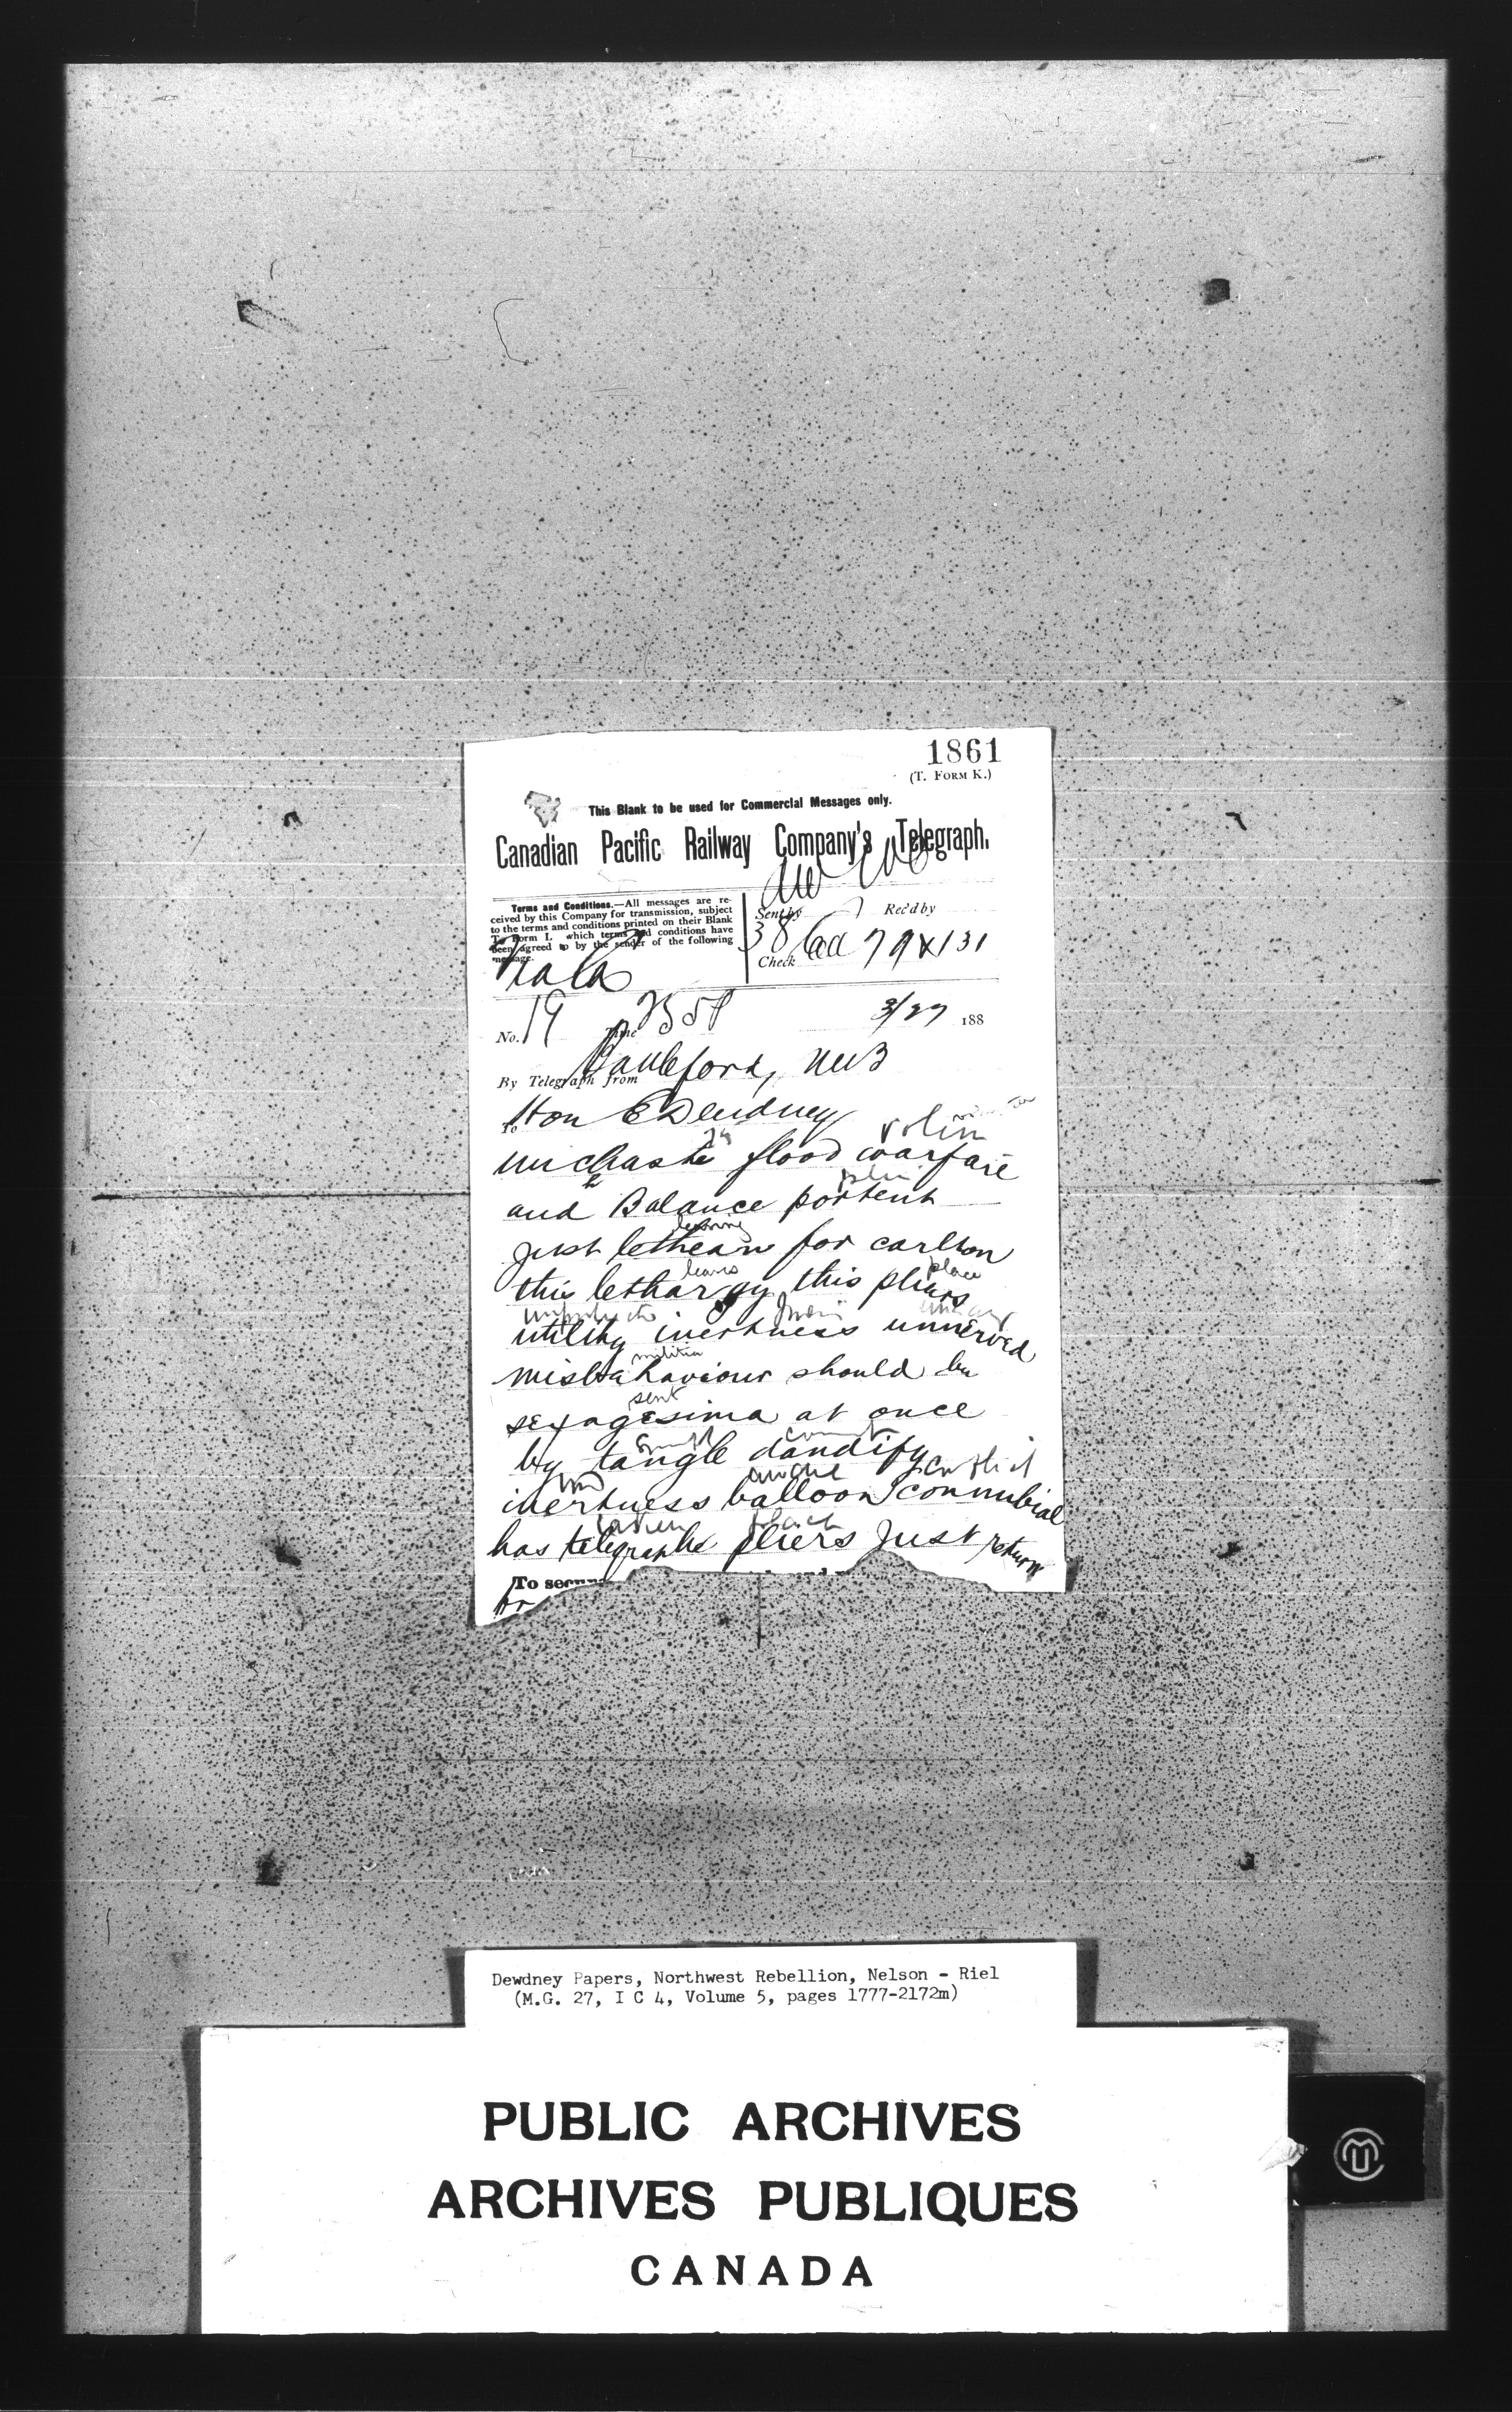 1861
(T. FORM K.)
This Blank to be used for Commercial Messages only.
Canadian Pacific Railway Company's Telegraph.
Terms and Conditions.—All messages are re-
ceived by this Company for transmission, subject
to the terms and conditions printed on their Blank
Form I. which terms and conditions have
been agreed to by the sender of the following
message.
Sent by Rec'd by
38
Check 79 x 131
No. 19 Time
3/27 188
By Telegraph from
To Hon E Dewdney
unchaste flood warfare
and Balance portent
leaving
just lethean for carlton
leaves place
this lethargy this pliers
utility inertness unnerved
militia
misbehaviour should be
sent
sexagesima at once
by tangle dandify
inertness balloon connubial
has telegraphs pliers just return
To secur
Dewdney Papers, Northwest Rebellion, Nelson - Riel
(M.G. 27, I C 4, Volume 5, pages 1777-2172m)
PUBLIC ARCHIVES
ARCHIVES PUBLIQUES
CANADA